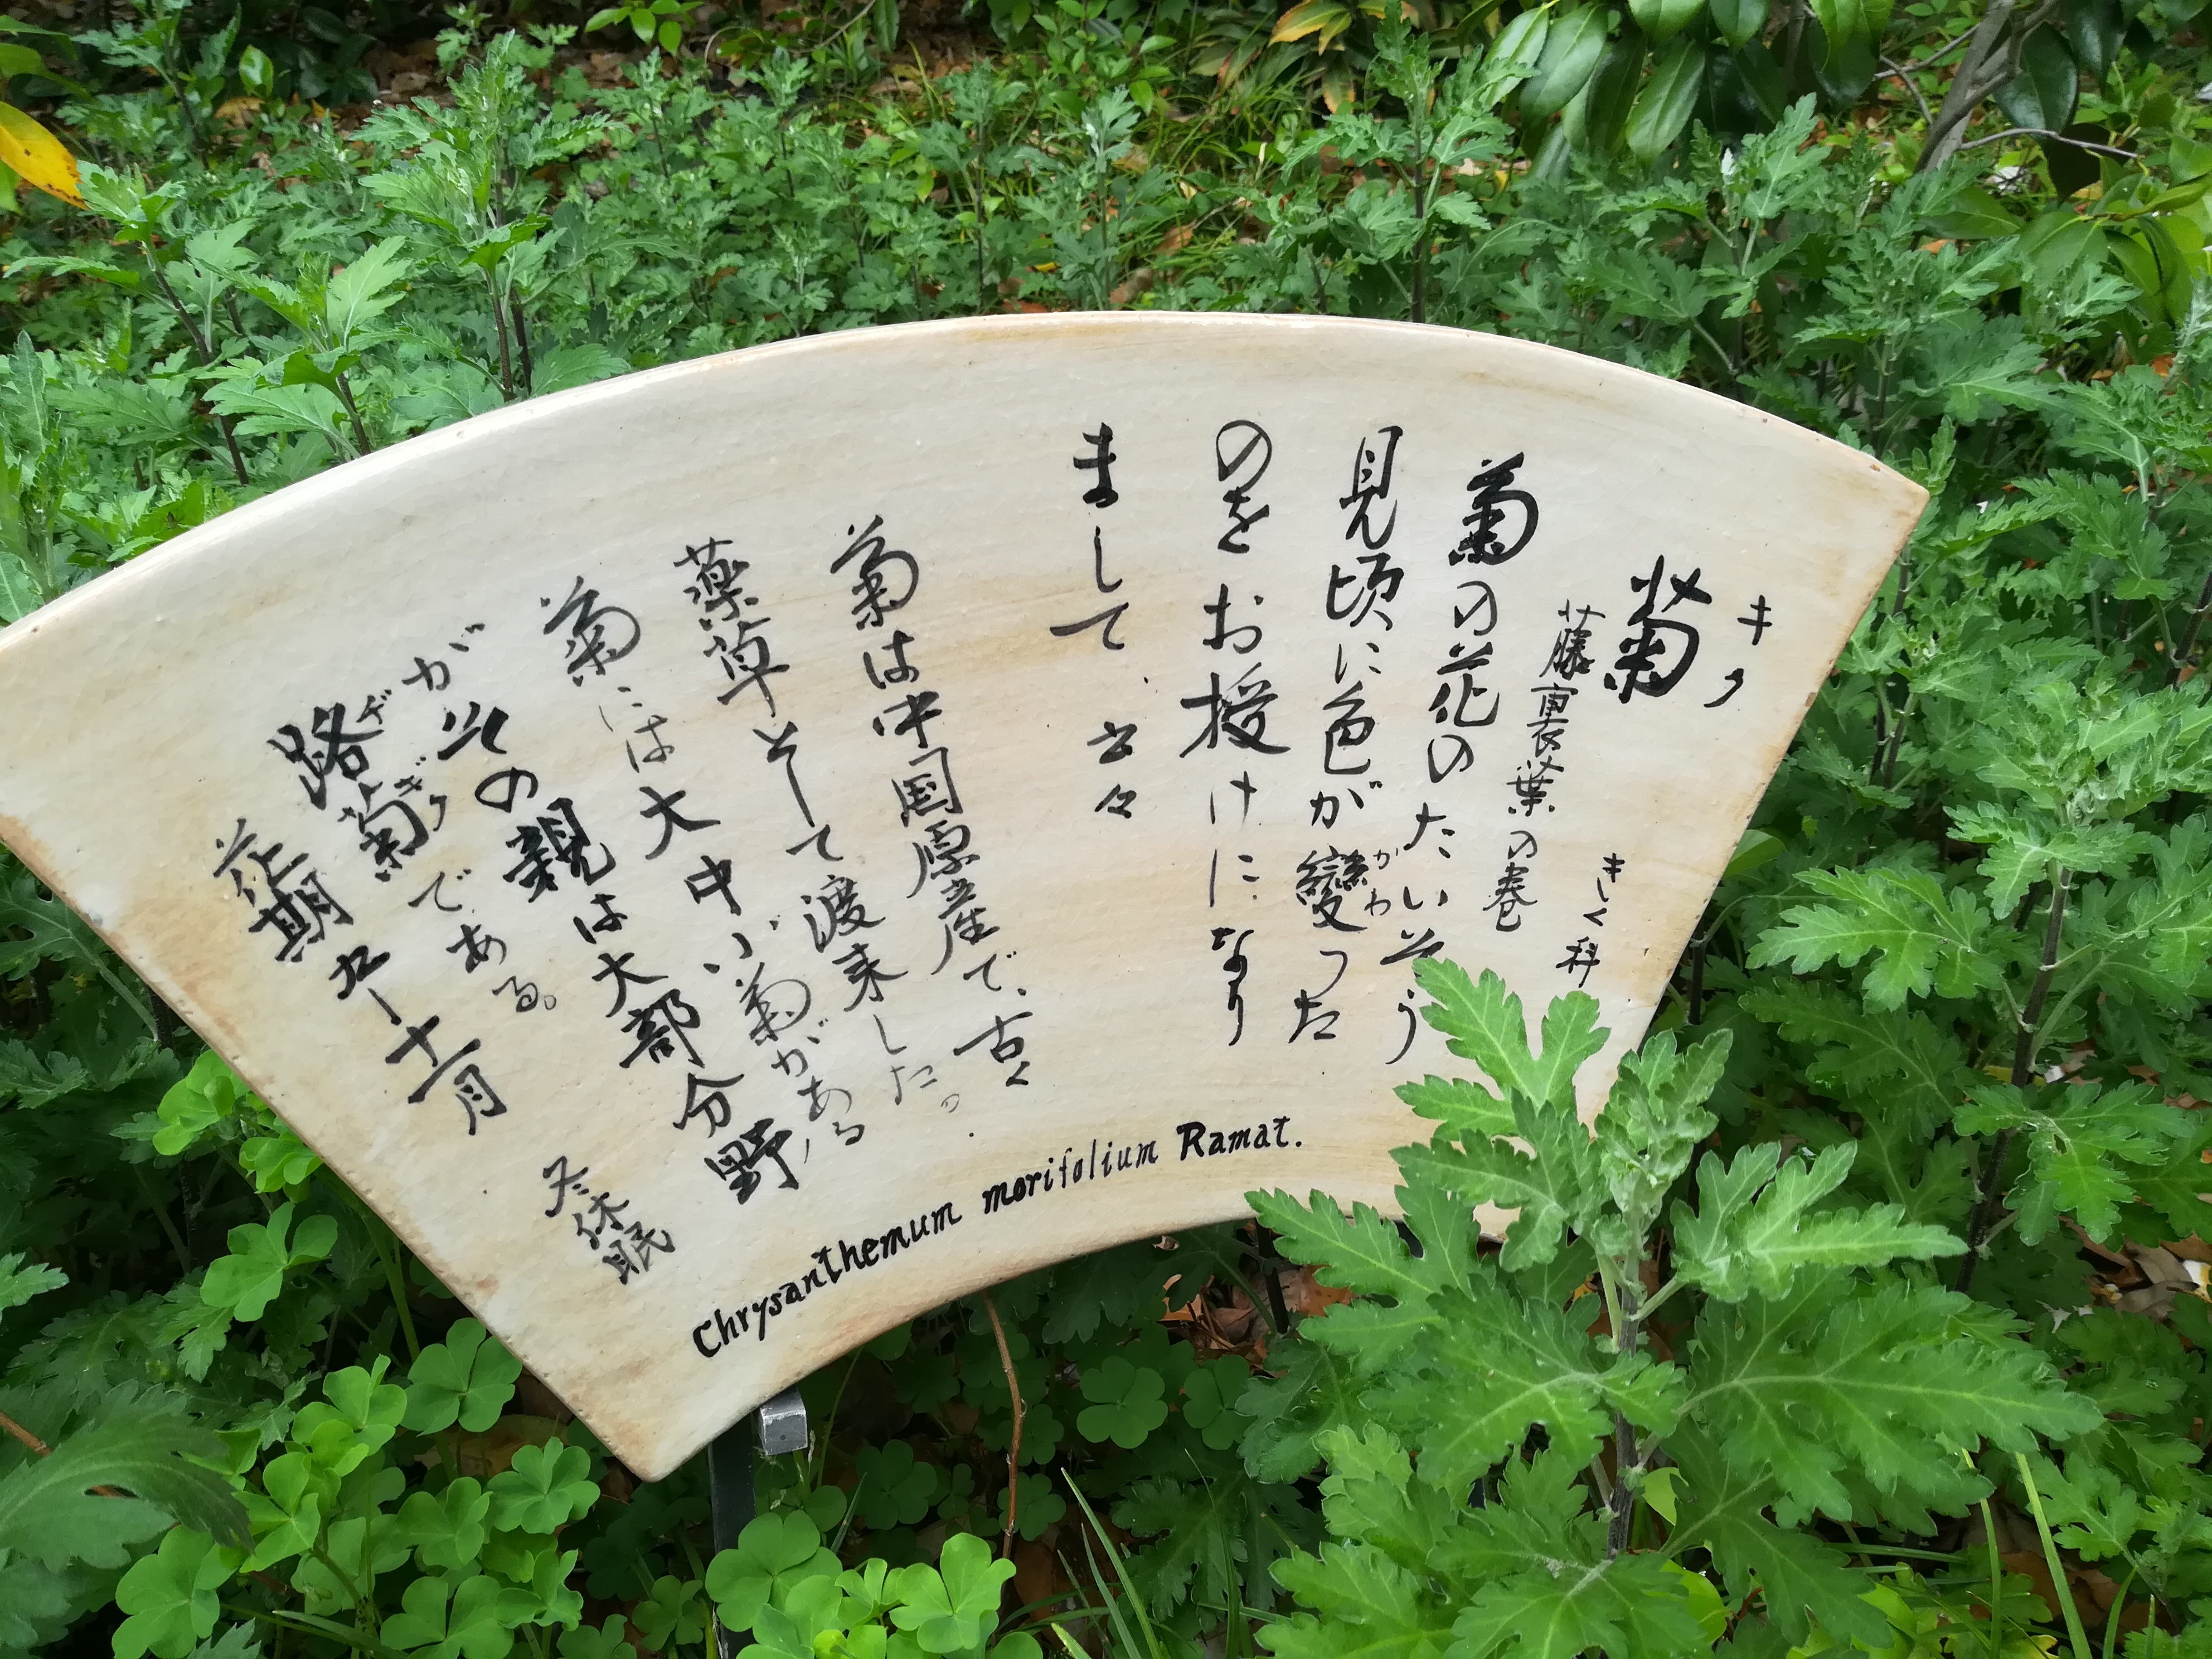 キク
菊 きく科
藤裏葉の巻
菊の花のたいそう
見頃に色が變った
かわ
のをお授けになり
まして、云々
菊は中国原産で、古く
薬草として渡来した。
菊には大中小菊がある
が其の親は大部分野
路菊である。
ぢぎく
花期 九ー十一月
冬休眠
Chrysanthemum morifolium Ramat.